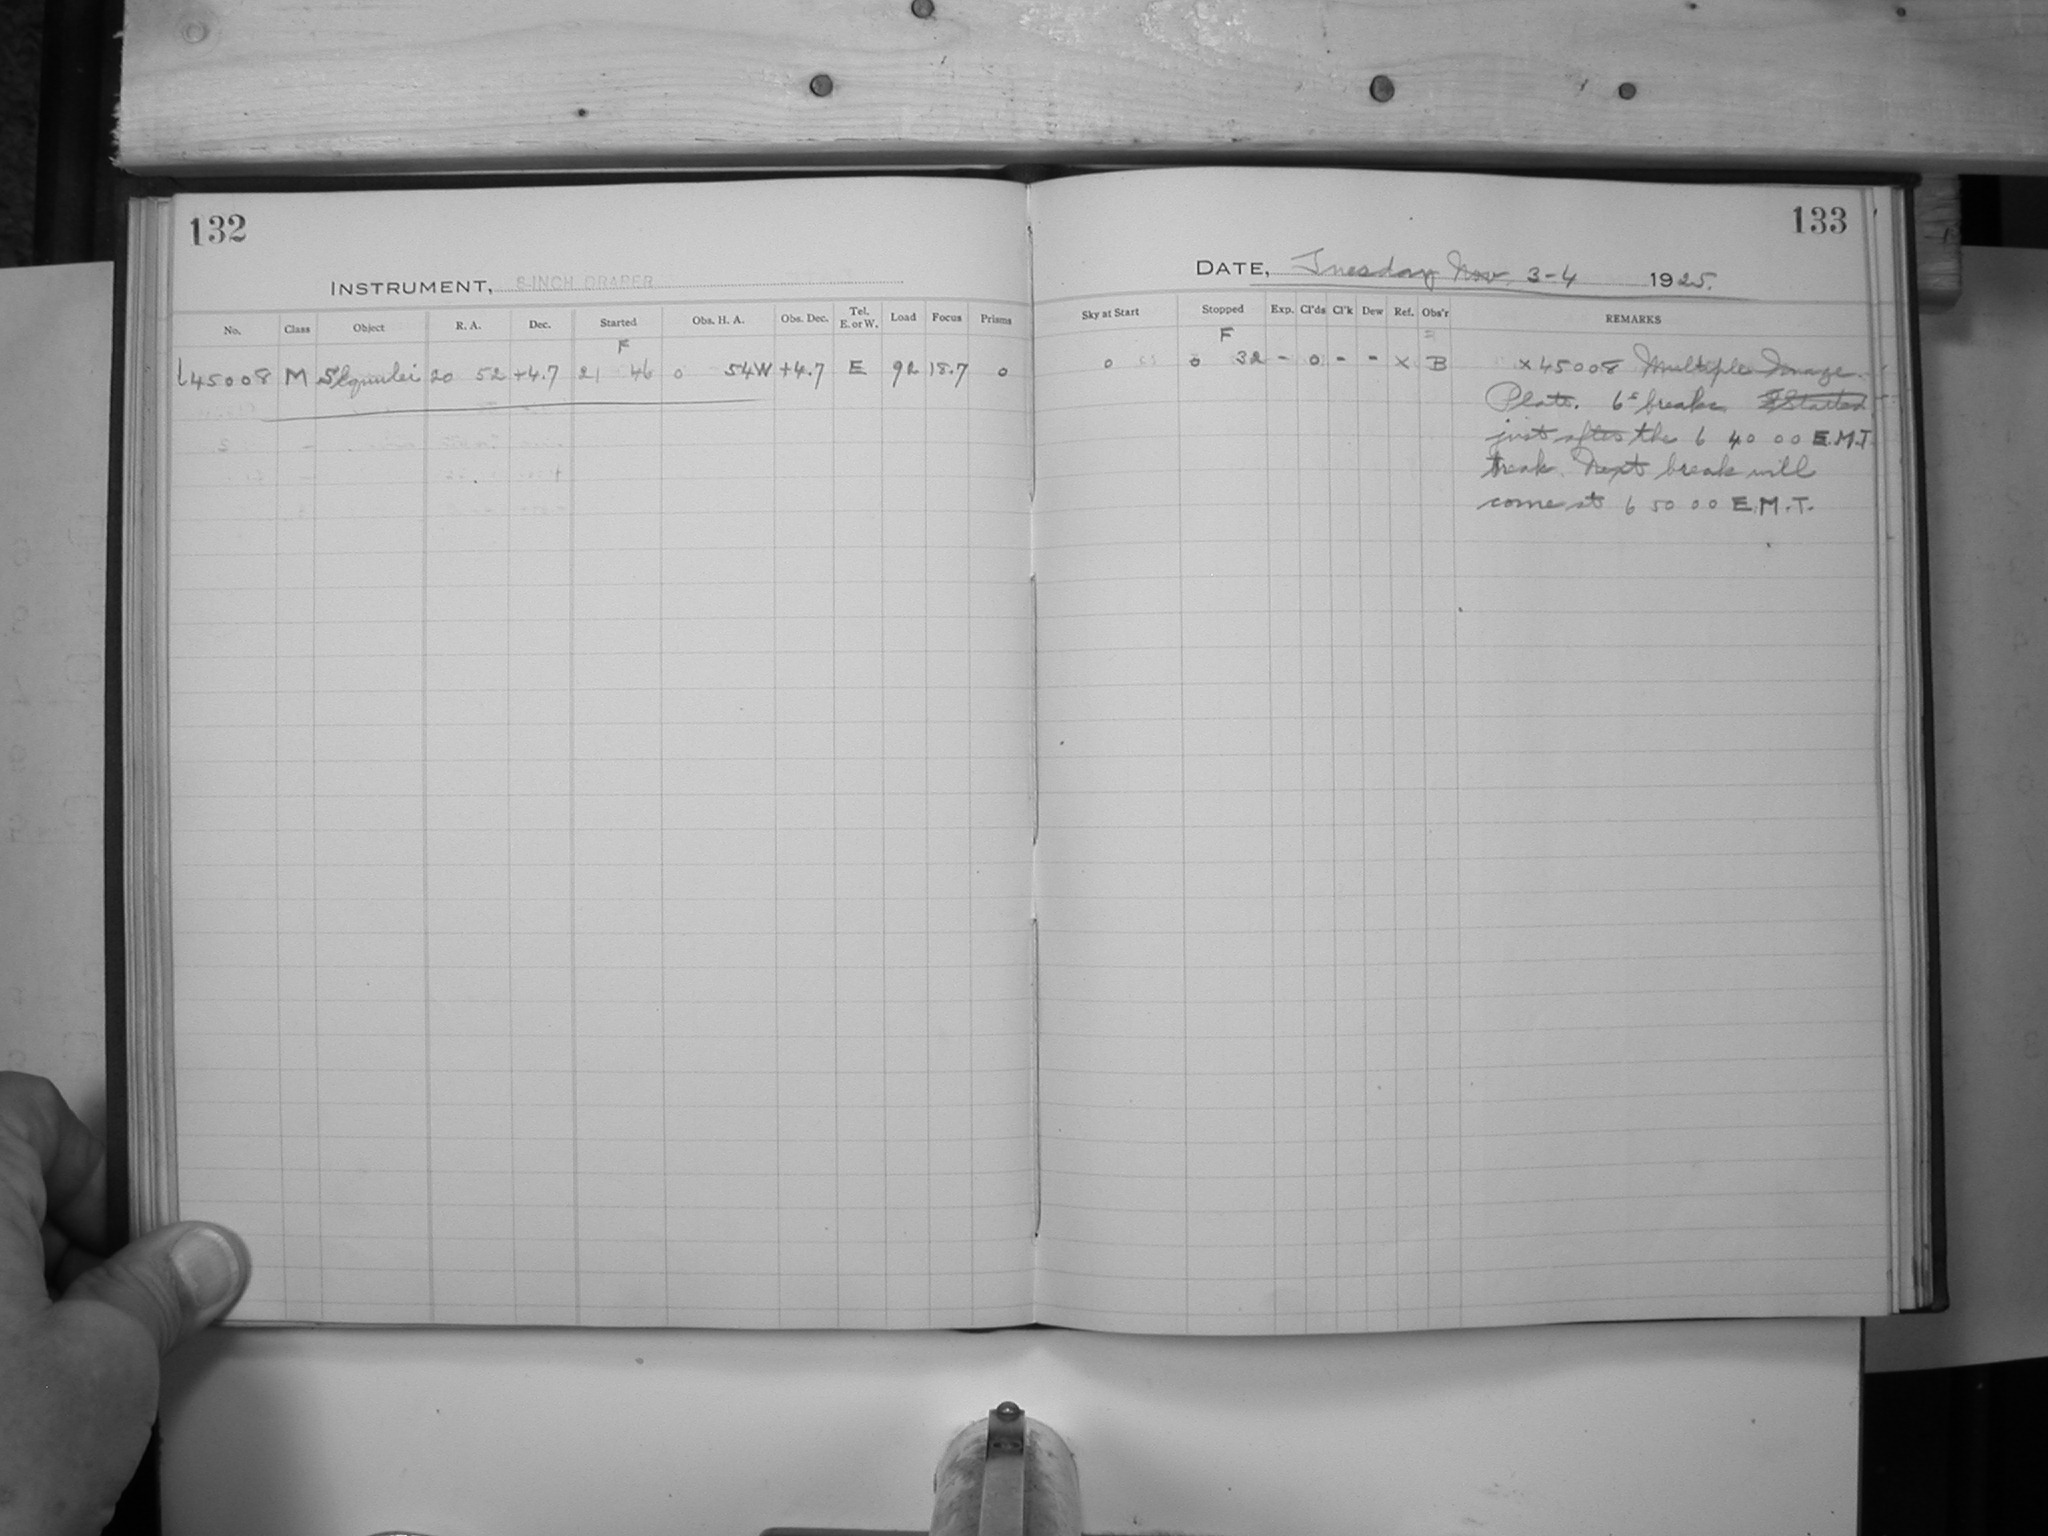 132
INSTRUMENT, 8-INCH DRAPER
No. Class Object R. A. Dec. Started Obs. H. A. Obs. Dec. Tel. E. or W. Load Focus Prisms
F
45008 M 20 52 +4.7 21 46 0 54W +4.7 E 92 18.7 0
133
DATE, Tuesday Nov. 3-4 1925.
Sky at Start Stopped Exp. Cl'ds Cl'k Dew Ref. Obs'r REMARKS
F
0 0 32 - 0 - - x B x45008 Multiple Image
Plate. 6s breaks. Started
just after the 6 40 00 E.M.T.
break. Next break will
come at 6 50 00 E.M.T.